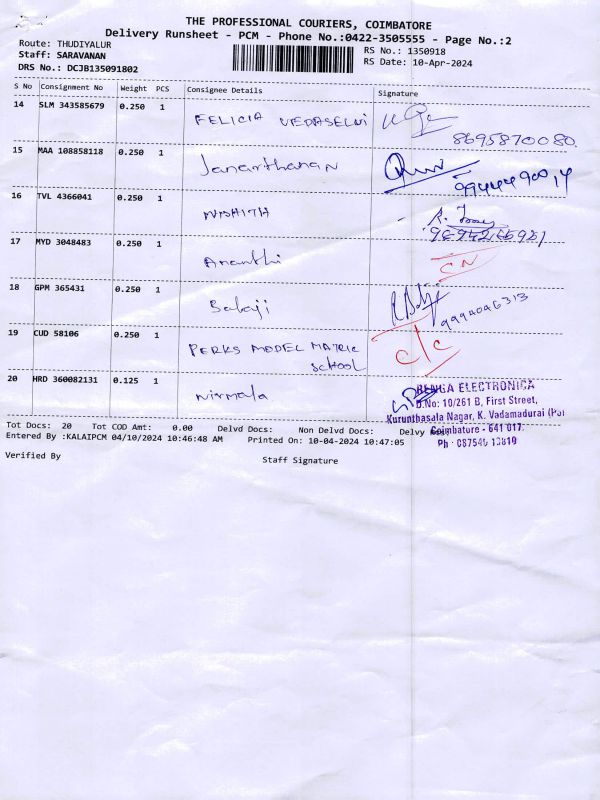 THE PROFESSIONAL COURIERS, COIMBATORE
Delivery Runsheet - PCM - Phone No.:0422-3505555 - Page No.:2
Route: THUDIYALUR
RS No.: 1350918
Staff: SARAVANAN
RS Date: 10-Apr-2024
DRS No.: DCJB135091802
S No Consignment No Weight PCS Consignee Details Signature
14 SLM 343585679 0.250 1 FELICIA VEDASELVI
8695870080.
15 MAA 108858118 0.250 1 Janarthanan
9944490014
16 TVL 4366041 0.250 1 NISHITH
17 MYD 3048483 0.250 1 Ananthi CN
18 GPM 365431 0.250 1 Balaji
9994096313
19 CUD 58106 0.250 1 PERKS MODEL MATRIC
SCHOOL C/C
20 HRD 360082131 0.125 1 Nirmala
RENGA ELECTRONICA
D.No: 10/261 B, First Street,
Kurunthasala Nagar, K. Vadamadurai (Po)
Coimbatore - 641 017.
Tot Docs: 20 Tot COD Amt: 0.00 Delvd Docs: Non Delvd Docs: Delvy
Entered By :KALAIPCM 04/10/2024 10:46:48 AM Printed On: 10-04-2024 10:47:05
Verified By Staff Signature